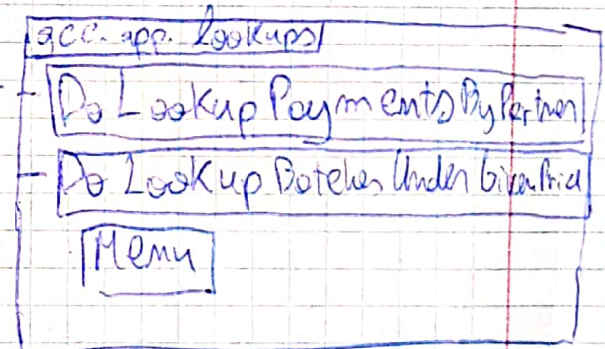 acc.app.lookups
DoLookupPaymentsByPartner
DoLookupBatchesUnderGivenPrice
Menu